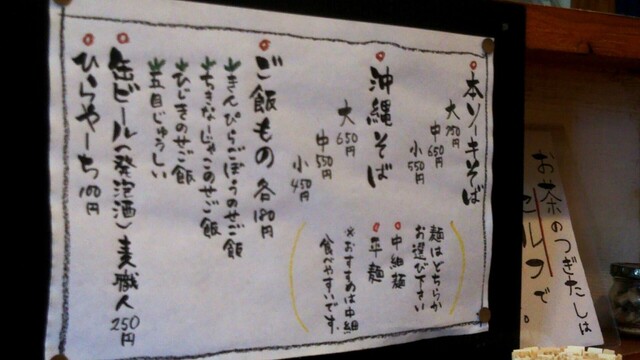 本ソーキそば
大 750円
中 650円
小 550円
沖縄そば
大 650円
中 550円
小 450円
麺はどちらか
お選び下さい
中細麺
平麺
※おすすめは中細
食べやすいです。
ご飯もの 各180円
きんぴらごぼうのせご飯
ちきなーじゃこのせご飯
ひじきのせご飯
五目じゅうしい
缶ビール(発泡酒)麦職人 250円
ひらやーち 100円
お茶のつぎたしは
セルフで
。